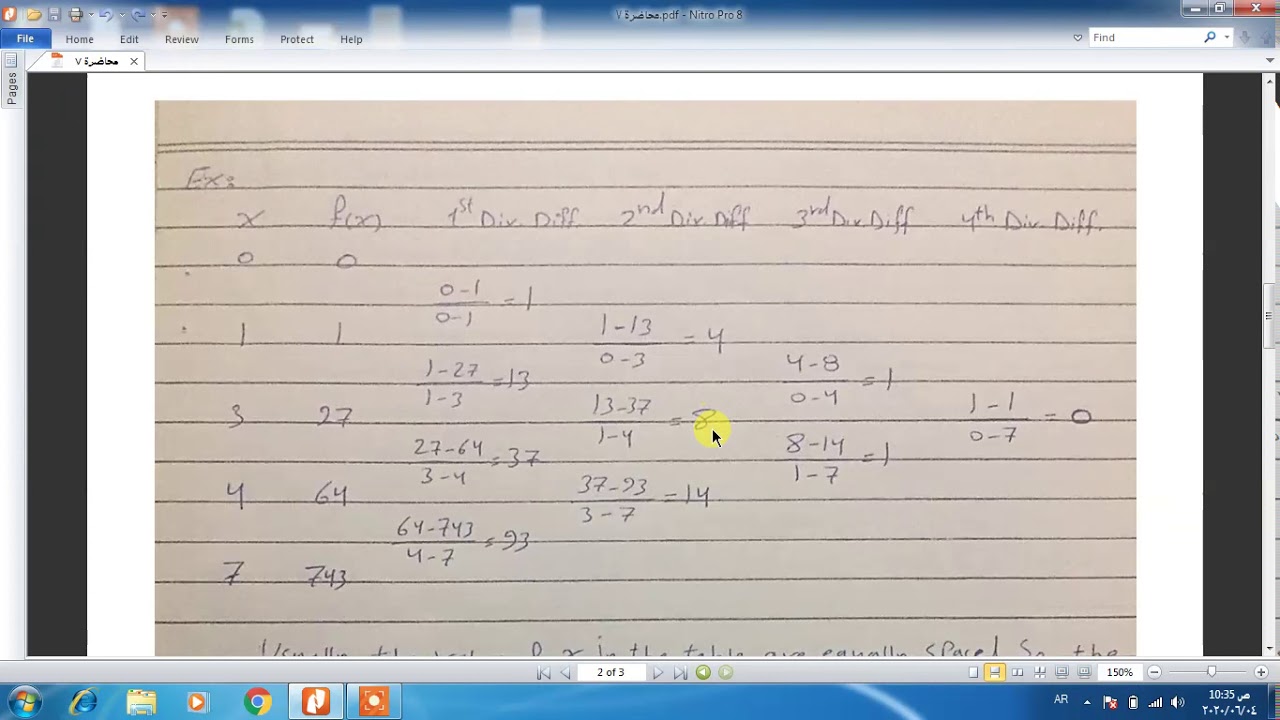 محاضرة ٧.pdf - Nitro Pro 8
File Home Edit Review Forms Protect Help Find
محاضرة ٧
Pages
Ex:
x f(x) 1st Div. Diff. 2nd Div. Diff 3rd Div. Diff 4th Div. Diff.
0 0
0-1/0-1 = 1
1 1 1-13/0-3 = 4
1-27/1-3 = 13 4-8/0-4 = 1
3 27 13-37/1-4 = 8 1-1/0-7 = 0
27-64/3-4 = 37 8-14/1-7 = 1
4 64 37-93/3-7 = 14
64-743/4-7 = 93
7 743
Usually the x in the table are equally spaced So the
2 of 3 150%
AR 10:35 ص
٢٠٢٠/٠٦/٠٤